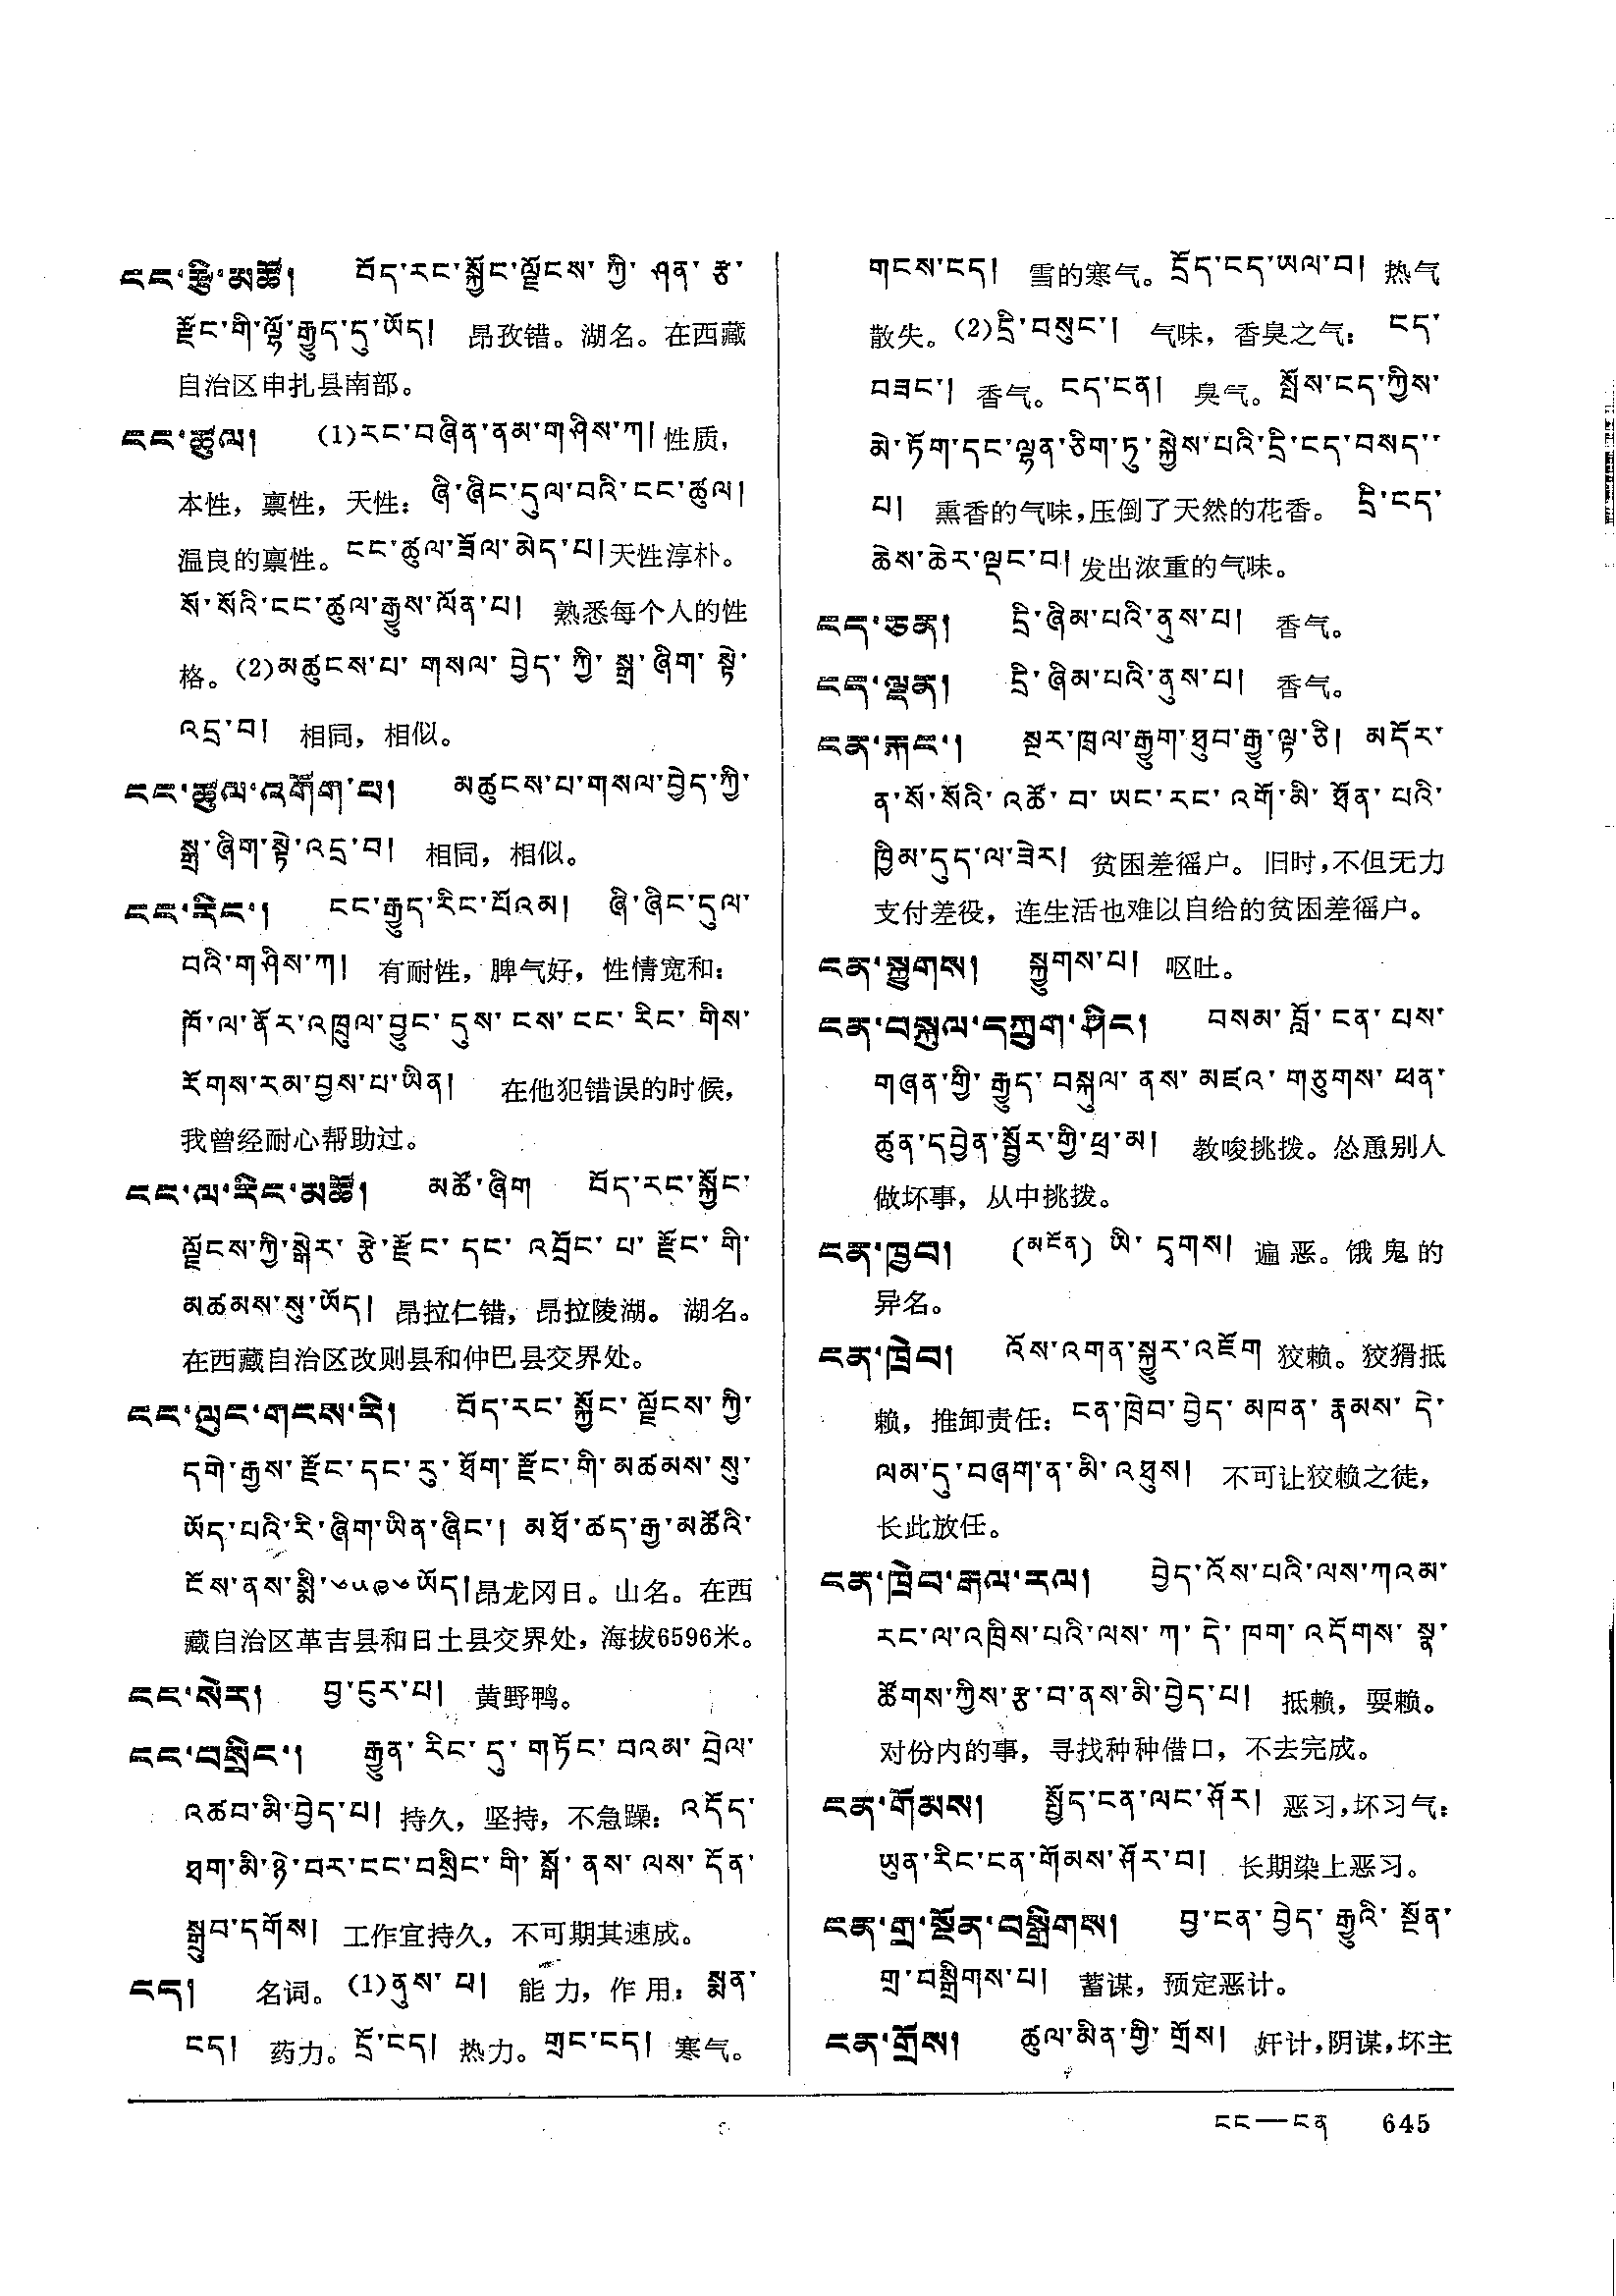 ངང་རྩི་མཚོ། བོད་རང་སྐྱོང་ལྗོངས་ཀྱི་ཤན་རྩ་
རྫོང་གི་ལྷོ་རྒྱུད་དུ་ཡོད། 昂孜错。湖名。在西藏
自治区申扎县南部。
ངང་ཚུལ། (1)རང་བཞིན་ནམ་གཤིས་ཀ། 性质，
本性，禀性，天性：ཞི་ཞིང་དུལ་བའི་ངང་ཚུལ།
温良的禀性。ངང་ཚུལ་ཟོལ་མེད་པ།天性淳朴。
སོ་སོའི་ངང་ཚུལ་རྒྱུས་ལོན་པ། 熟悉每个人的性
格。(2)མཚུངས་པ་གསལ་བྱེད་ཀྱི་སྒྲ་ཞིག་སྟེ་
འདྲ་བ། 相同，相似。
ངང་ཚུལ་འགོག་པ། མཚུངས་པ་གསལ་བྱེད་ཀྱི་
སྒྲ་ཞིག་སྟེ་འདྲ་བ། 相同，相似。
ངང་རིང་། ངང་རྒྱུད་རིང་པོའམ། ཞི་ཞིང་དུལ་
བའི་གཤིས་ཀ། 有耐性，脾气好，性情宽和：
ཁོ་ལ་ནོར་འཁྲུལ་བྱུང་དུས་ངས་ངང་རིང་གིས་
རོགས་རམ་བྱས་པ་ཡིན། 在他犯错误的时候，
我曾经耐心帮助过。
ངང་ལ་རིང་མཚོ། མཚོ་ཞིག བོད་རང་སྐྱོང་
ལྗོངས་ཀྱི་སྒེར་རྩེ་རྫོང་དང་འབྲོང་པ་རྫོང་གི་
མཚམས་སུ་ཡོད། 昂拉仁错，昂拉陵湖。湖名。
在西藏自治区改则县和仲巴县交界处。
ངང་ལུང་གངས་རི། བོད་རང་སྐྱོང་ལྗོངས་ཀྱི་
དགེ་རྒྱས་རྫོང་དང་རུ་ཐོག་རྫོང་གི་མཚམས་སུ་
ཡོད་པའི་རི་ཞིག་ཡིན་ཞིང་། མཐོ་ཚད་རྒྱ་མཚོའི་
ངོས་ནས་སྨི་༦༥༩༦ཡོད།昂龙冈日。山名。在西
藏自治区革吉县和日土县交界处，海拔6596米。
ངང་སེར། བྱ་ངུར་པ། 黄野鸭。
ངང་བསྲིང་། རྒྱུན་རིང་དུ་གཏོང་བའམ་བྲེལ་
འཚབ་མི་བྱེད་པ། 持久，坚持，不急躁：འདོད་
ཐག་མི་ཉེ་བར་ངང་བསྲིང་གི་སྒོ་ནས་ལས་དོན་
སྒྲུབ་དགོས། 工作宜持久，不可期其速成。
ངད། 名词。(1)ནུས་པ། 能力，作用：སྨན་
ངད། 药力。དྲོ་ངད། 热力。གྲང་ངད། 寒气。
གངས་ངད། 雪的寒气。དྲོད་ངད་ཡལ་བ། 热气
散失。(2)དྲི་བསུང་། 气味，香臭之气：ངད་
བཟང་། 香气。ངད་ངན། 臭气。སྤོས་ངད་ཀྱིས་
མེ་ཏོག་དང་ལྷན་ཅིག་ཏུ་སྐྱེས་པའི་དྲི་ངད་བསད་
པ། 熏香的气味，压倒了天然的花香。 དྲི་ངད་
ཆེས་ཆེར་ལྡང་བ། 发出浓重的气味。
ངད་ཅན། དྲི་ཞིམ་པའི་ནུས་པ། 香气。
ངད་ལྡན། དྲི་ཞིམ་པའི་ནུས་པ། 香气。
ངན་རྐང་། སྔར་ཁྲལ་རྒྱུག་ཐུབ་རྒྱུ་ལྟ་ཅི། མདོར་
ན་སོ་སོའི་འཚོ་བ་ཡང་རང་འགོ་མི་ཐོན་པའི་
ཁྱིམ་དུད་ལ་ཟེར། 贫困差徭户。旧时，不但无力
支付差役，连生活也难以自给的贫困差徭户。
ངན་སྐྱུགས། སྐྱུགས་པ། 呕吐。
ངན་བསྐུལ་དཀྲུག་ཤིང་། བསམ་བློ་ངན་པས་
གཞན་གྱི་རྒྱུད་བསྐུལ་ནས་མཛའ་གཅུགས་ཕན་
ཚུན་དབྱེན་སྦྱོར་གྱི་ཕྲ་མ། 教唆挑拨。怂恿别人
做坏事，从中挑拨。
ངན་ཁྱབ། (མངོན) ཡི་དྭགས། 遍恶。饿鬼的
异名。
ངན་ཁྲེབ། འོས་འགན་སྐྱུར་འཇོག 狡赖。狡猾抵
赖，推卸责任：ངན་ཁྲེབ་བྱེད་མཁན་རྣམས་དེ་
ལམ་དུ་བཞག་ན་མི་འཐུས། 不可让狡赖之徒，
长此放任。
ངན་ཁྲེབ་རྒལ་རལ། བྱེད་འོས་པའི་ལས་ཀའམ་
རང་ལ་འཁྲིས་པའི་ལས་ཀ་དེ་ཁག་འདོགས་སྣ་
ཚོགས་ཀྱིས་རྩ་བ་ནས་མི་བྱེད་པ། 抵赖，耍赖。
对份内的事，寻找种种借口，不去完成。
ངན་གོམས། སྤྱོད་ངན་ལང་ཤོར། 恶习，坏习气：
ཡུན་རིང་ངན་གོམས་ཤོར་བ། 长期染上恶习。
ངན་གྲ་སྔོན་བསྒྲིགས། བྱ་ངན་བྱེད་རྒྱུའི་སྔོན་
གྲ་བསྒྲིགས་པ། 蓄谋，预定恶计。
ངན་གྲོས། ཚུལ་མིན་གྱི་གྲོས། 奸计，阴谋，坏主
ངང—ངན 645